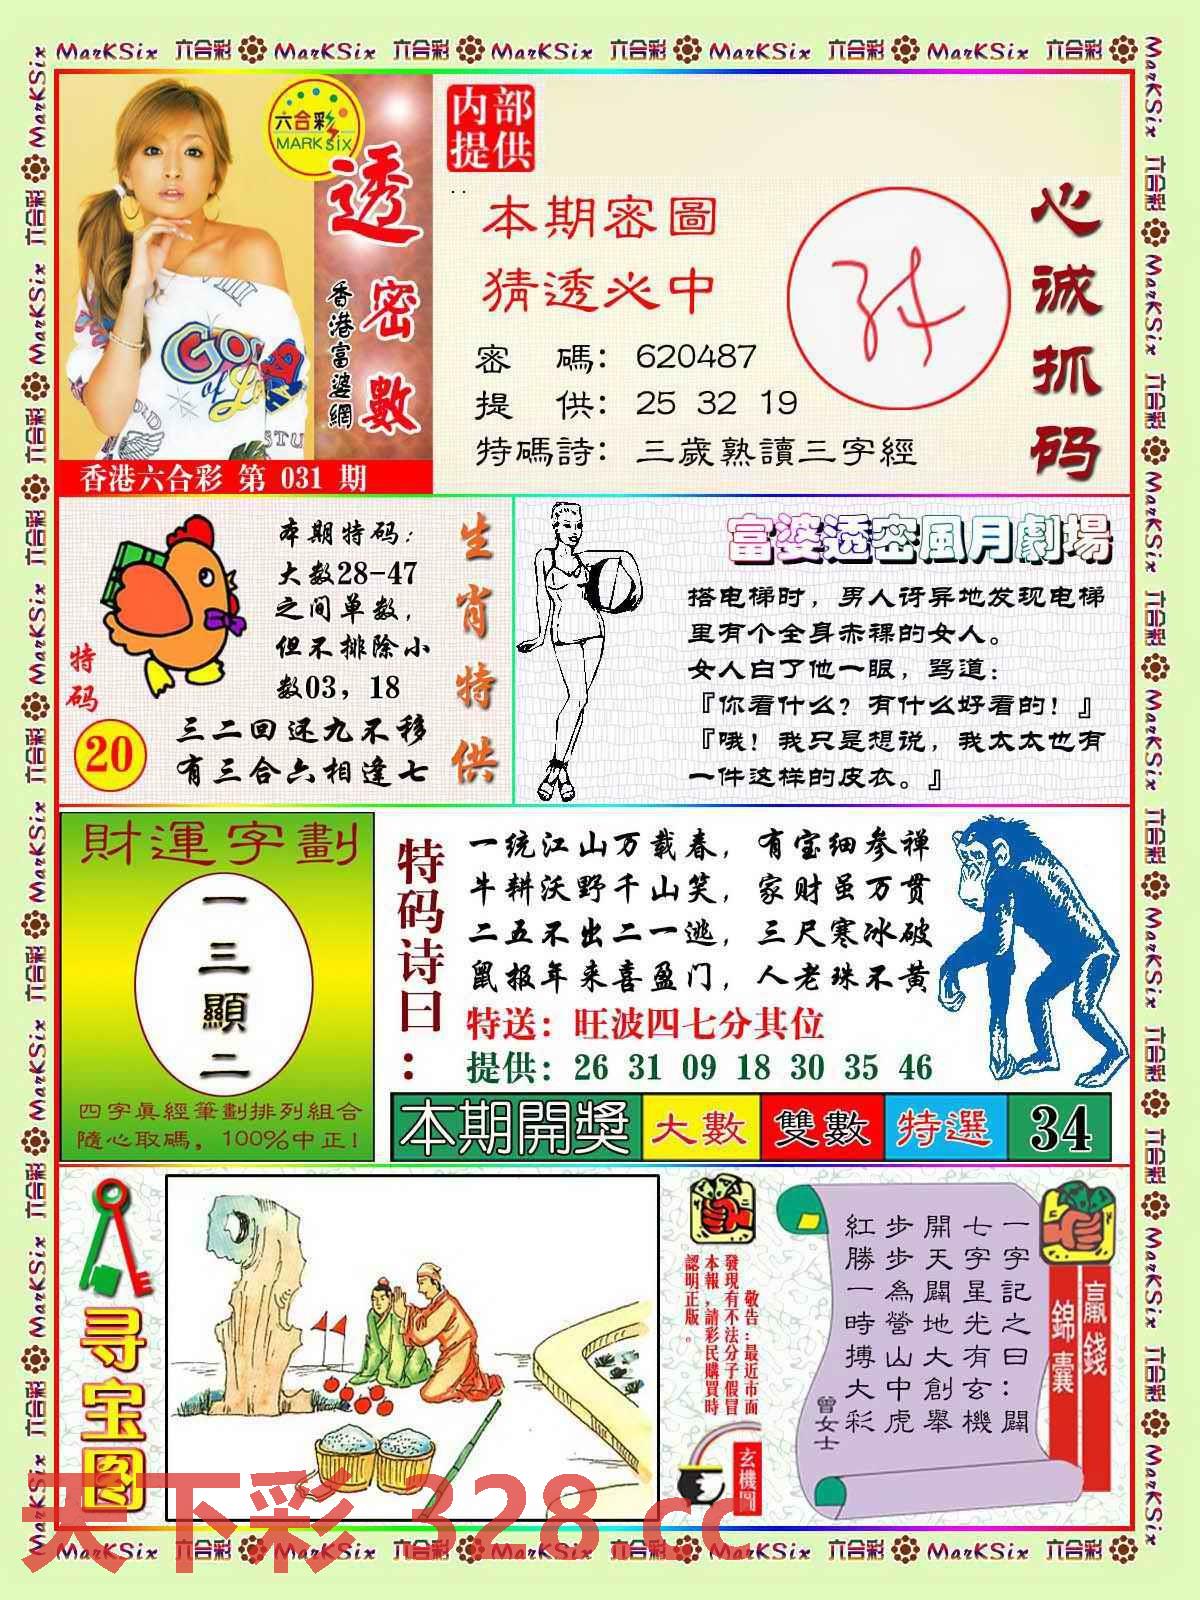 MarKSix 六合彩 MarKSix 六合彩 MarKSix 六合彩 MarKSix 六合彩 MarKSix 六合彩
六合彩
MARK SIX
透密數
香港富婆網
香港六合彩 第 031 期
内部
提供
本期密圖
猜透必中
密 碼: 620487
提 供: 25 32 19
特碼詩: 三歲熟讀三字經
心诚抓码
特码
20
本期特码:
大数28-47
之间单数,
但不排除小
数03, 18
三二回还九不移
有三合六相逢七
生肖特供
富婆透密風月劇場
搭电梯时，男人讶异地发现电梯
里有个全身赤裸的女人。
女人白了他一眼，骂道：
『你看什么？有什么好看的！』
『哦！我只是想说，我太太也有
一件这样的皮衣。』
財運字劃
一三顯二
四字眞經筆劃排列組合
隨心取碼, 100%中正!
特码诗曰:
一统江山万载春, 有宝细参禅
牛耕沃野千山笑, 家财虽万贯
二五不出二一逃, 三尺寒冰破
鼠报年来喜盈门, 人老珠不黄
特送: 旺波四七分其位
提供: 26 31 09 18 30 35 46
本期開獎 大數 雙數 特選 34
寻宝图
敬告:最近市面
發現有不法分子假冒
本報,請彩民購買時
認明正版。
玄機圖
一字記之曰:闢
七字星光有玄機
開天闢地大創舉
步步為營山中虎
紅勝一時搏大彩
曾女士
贏錢
錦囊
天下彩 328.cc
MarKSix 六合彩 MarKSix 六合彩 MarKSix 六合彩 MarKSix 六合彩 MarKSix 六合彩